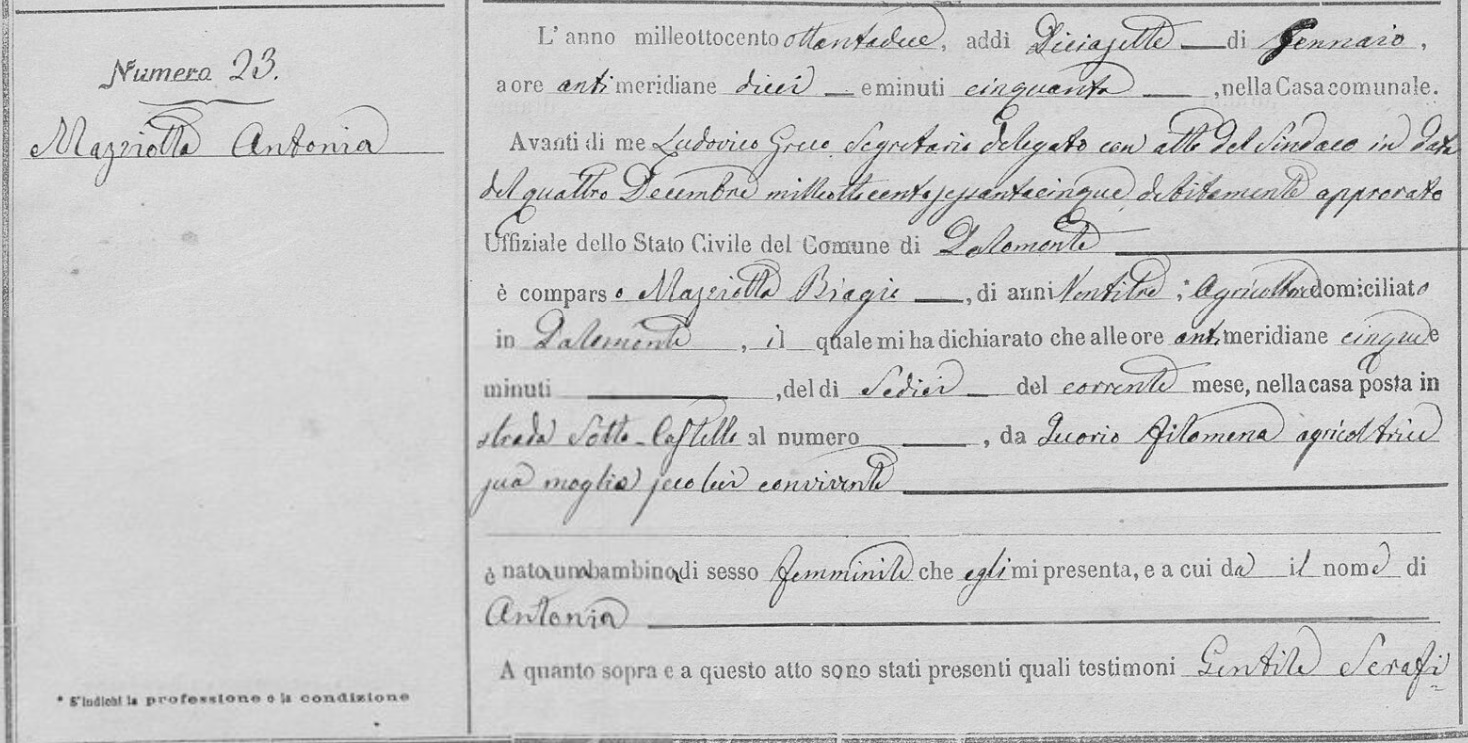 Numero 23.
Mazziotta Antonia
* S'indichi la professione o la condizione
L'anno milleottocento ottantadue, addì Diciasette di Gennaio,
a ore antimeridiane dieci e minuti cinquanta, nella Casa comunale.
Avanti di me Ludovico Greco Segretario delegato con atto del Sindaco in data
del quattro Decembre milleottocentosessantacinque debitamente approvato
Uffiziale dello Stato Civile del Comune di
è comparso Mazziotta Biagio, di anni Ventitre, Agricoltore domiciliato
in, il quale mi ha dichiarato che alle ore antimeridiane cinque e
minuti, del dì Sedici del corrente mese, nella casa posta in
strada Sotto-Castello al numero, da Iuorio Filomena agricoltrice
sua moglie seco lui convivente
è nata una bambina di sesso femminile che egli mi presenta, e a cui da il nome di
Antonia
A quanto sopra e a questo atto sono stati presenti quali testimoni Gentile Serafi=